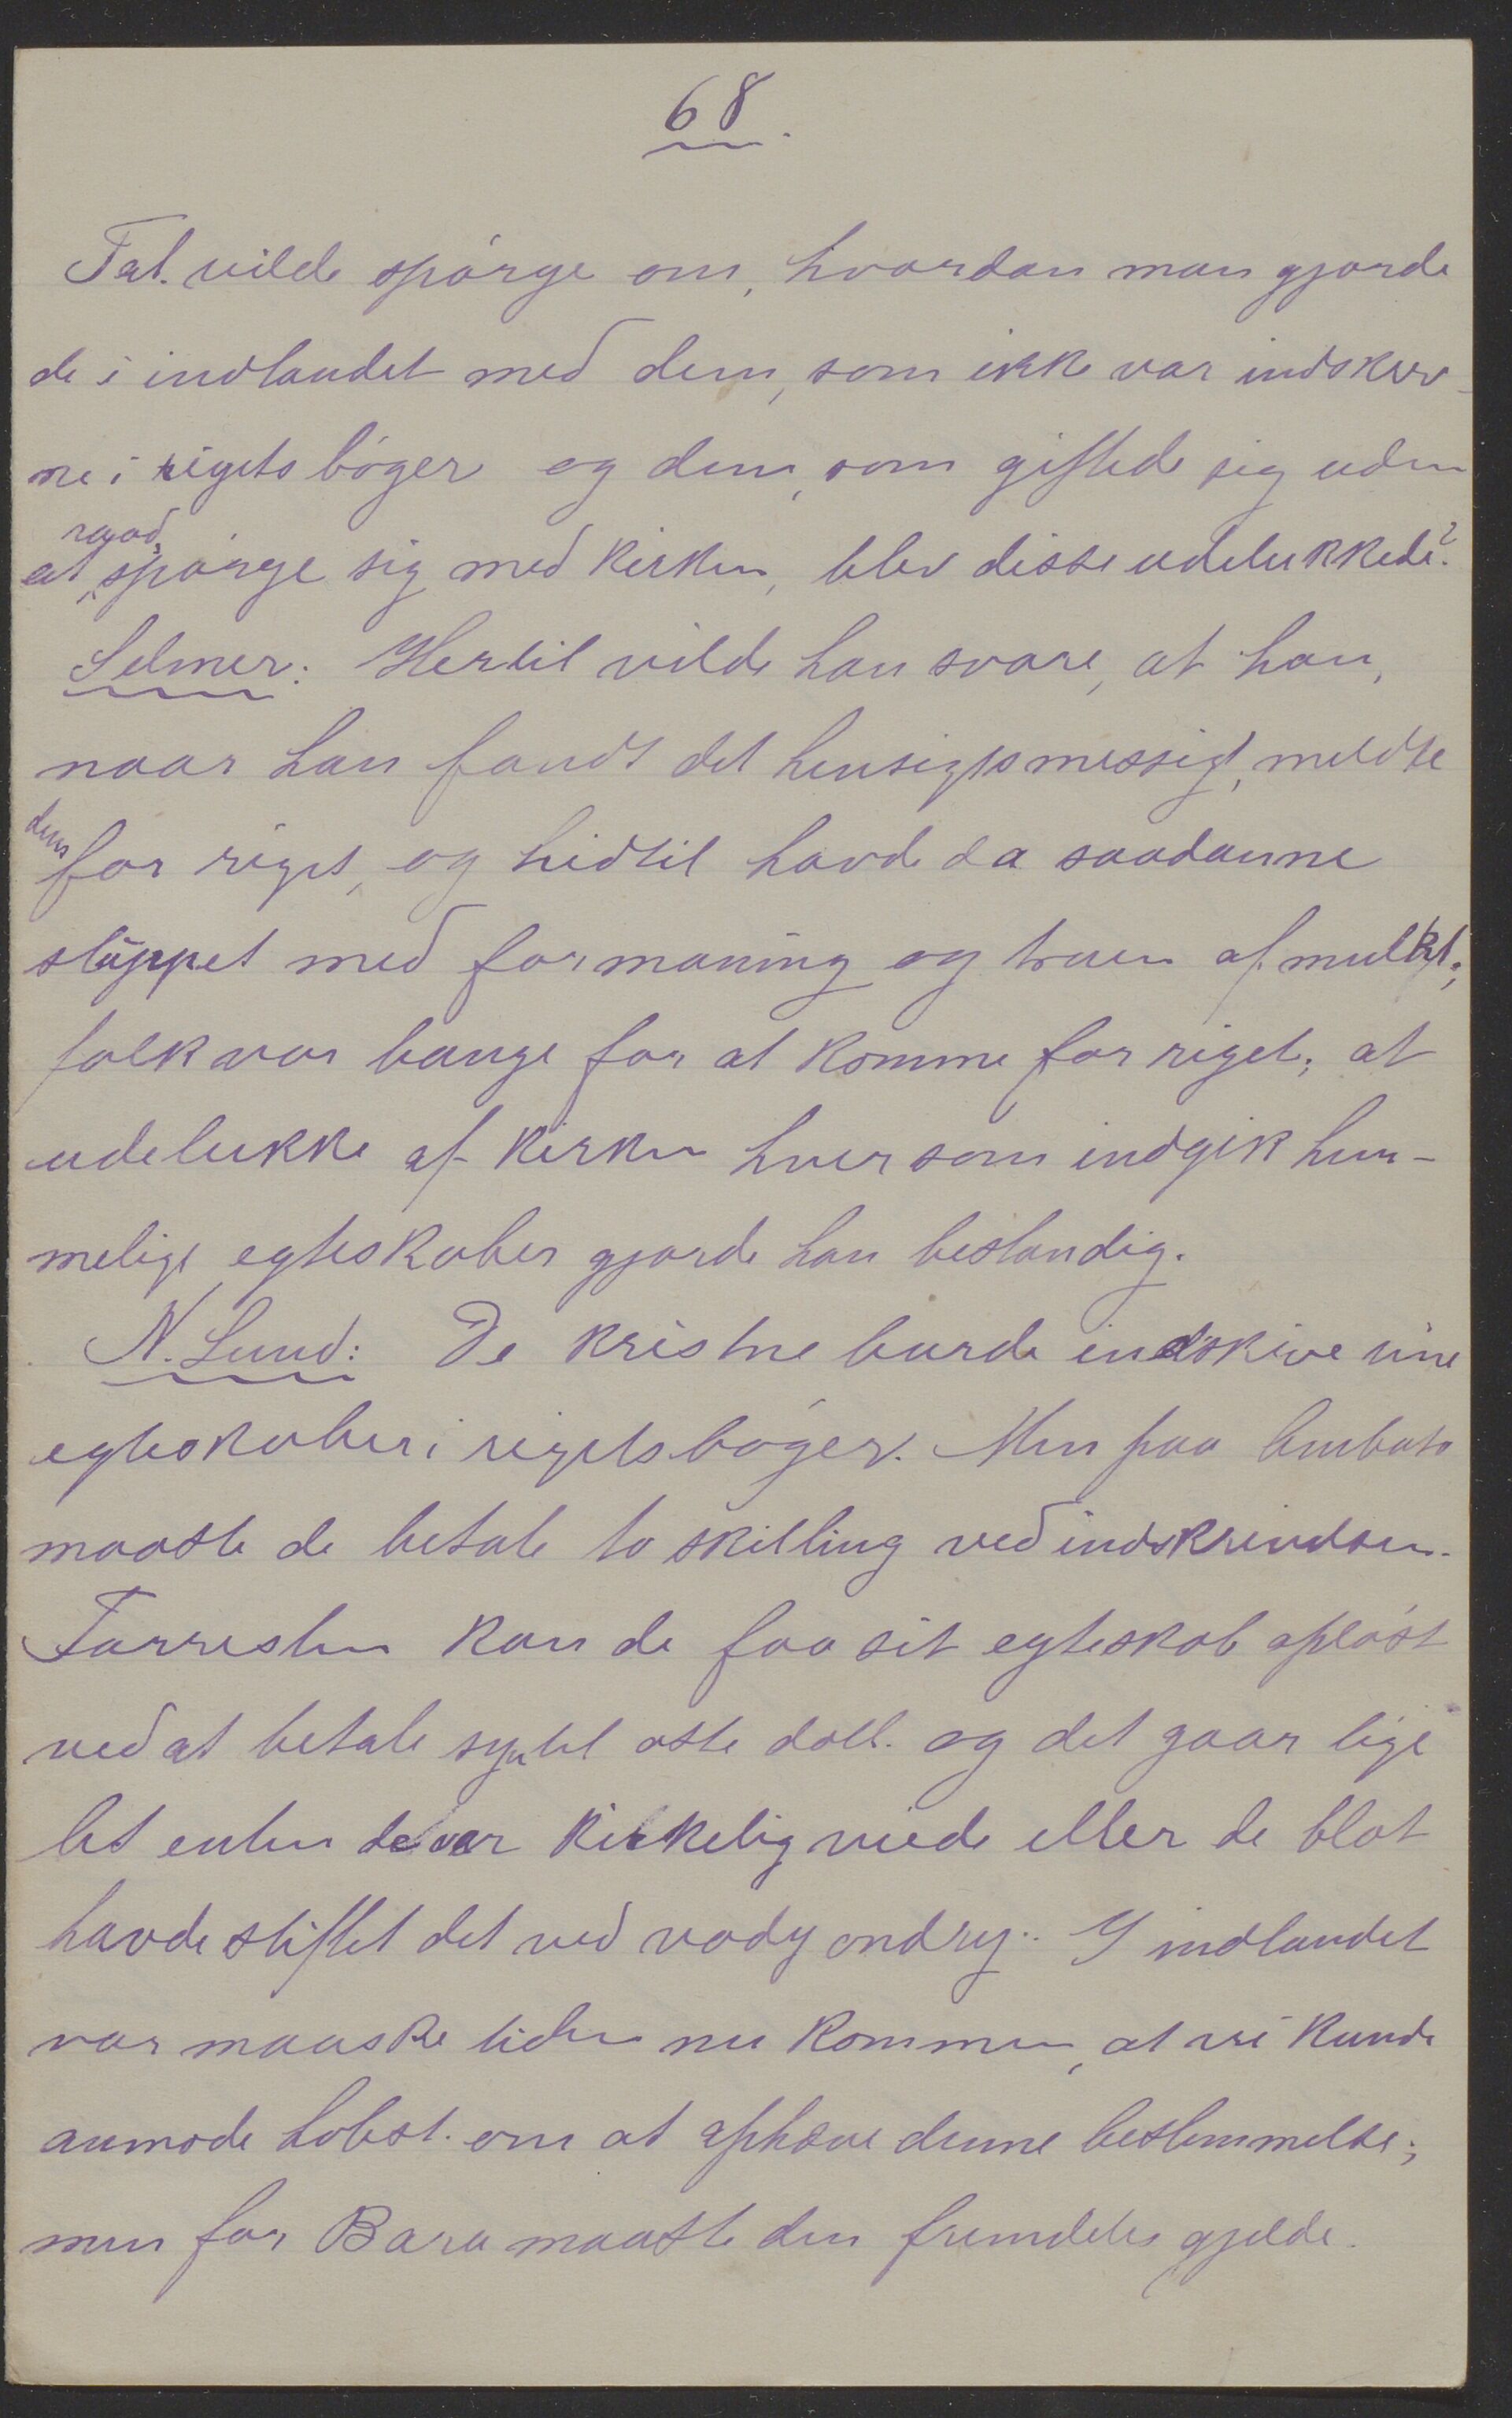 68.
Tal. vilde spörge om, hvordan man gjorde
de i indlandet med dem, som ikke var indskrev-
ne i rigets böger og dem, som giftede sig uden
at raad spörge sig med kirken, blev disse udelukkede?
Selmer: Hertil vilde han svare, at han,
naar han fandt det hensigtsmessigt, meldte
dem for riget, og hidtil havde da saadanne
sluppet med formaning og truen af mulkt;
folk var bange for at komme for riget; at
udelukke af kirken hver som indgik hem-
melige egteskaber gjorde han bestandig.
N. Lund: De kristne burde indskrive sine
egteskaber i rigets böger. Men paa
maatte de betale to skilling ved indskrivelsen.
Forresten kan de faa sit egteskab oplöst
ved at betale syv til otte doll. og det gaar lige
let enten de var kirkelig viede eller de blot
havde stiftet det ved vody ondry. I indlandet
var maaske tiden nu kommen, at vi kunde
anmode hobest. om at ophæve denne bestemmelse;
men for Bara maatte den fremdeles gjelde.